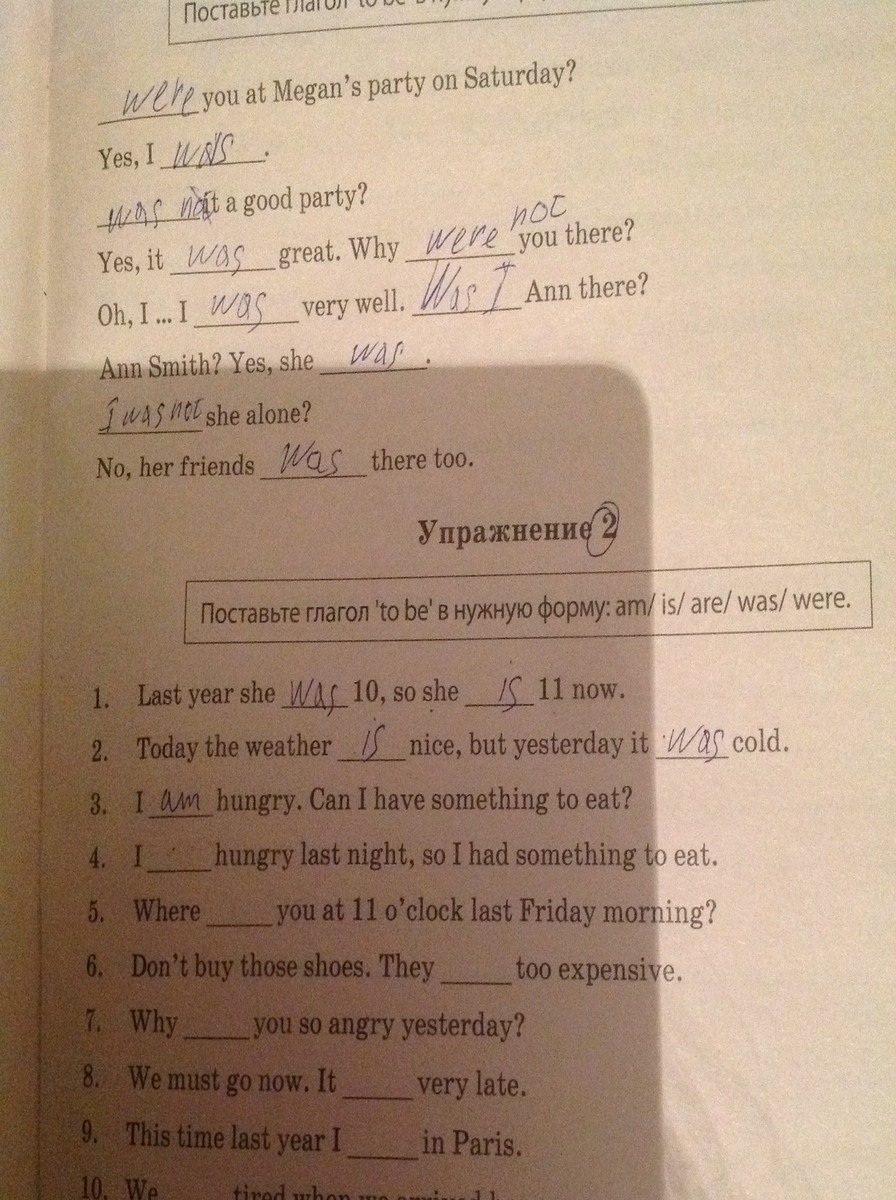 Поставьте глагол 'to be' в
were you at Megan's party on Saturday?
Yes, I was.
was not it a good party?
not
Yes, it was great. Why were you there?
Oh, I ... I was very well. Was I Ann there?
Ann Smith? Yes, she was.
I was not she alone?
No, her friends Was there too.
Упражнение 2
Поставьте глагол 'to be' в нужную форму: am/ is/ are/ was/ were.
1. Last year she was 10, so she is 11 now.
2. Today the weather is nice, but yesterday it was cold.
3. I am hungry. Can I have something to eat?
4. I ____ hungry last night, so I had something to eat.
5. Where ____ you at 11 o'clock last Friday morning?
6. Don't buy those shoes. They ____ too expensive.
7. Why ____ you so angry yesterday?
8. We must go now. It ____ very late.
9. This time last year I ____ in Paris.
10. We ____ tired when we arrived